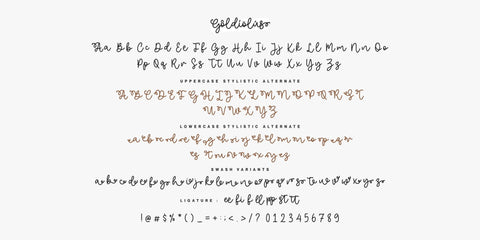 Goldiolus
Aa Bb Cc Dd Ee Ff Gg Hh Ii Jj Kk Ll Mm Nn Oo
Pp Qq Rr Ss Tt Uu Vv Ww Xx Yy Zz
UPPERCASE STYLISTIC ALTERNATE
A B C D E F G H I J K L M N O P Q R S T
U V W X Y Z
LOWERCASE STYLISTIC ALTERNATE
a b c d e f g h i j k l m n o p q r s
t u v w x y z
SWASH VARIANTS
a b c d e f g h i j k l m n o p q r s t u v w x y z
LIGATURE : ee fi fl ll pp st tt
!@#$%*()_=+:;<.>/? 0123456789